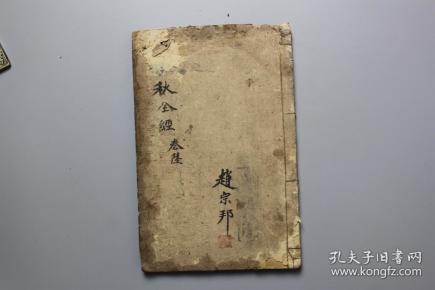 秋全經
卷陸
趙宗邦
孔夫子旧书网
www.kongfz.com